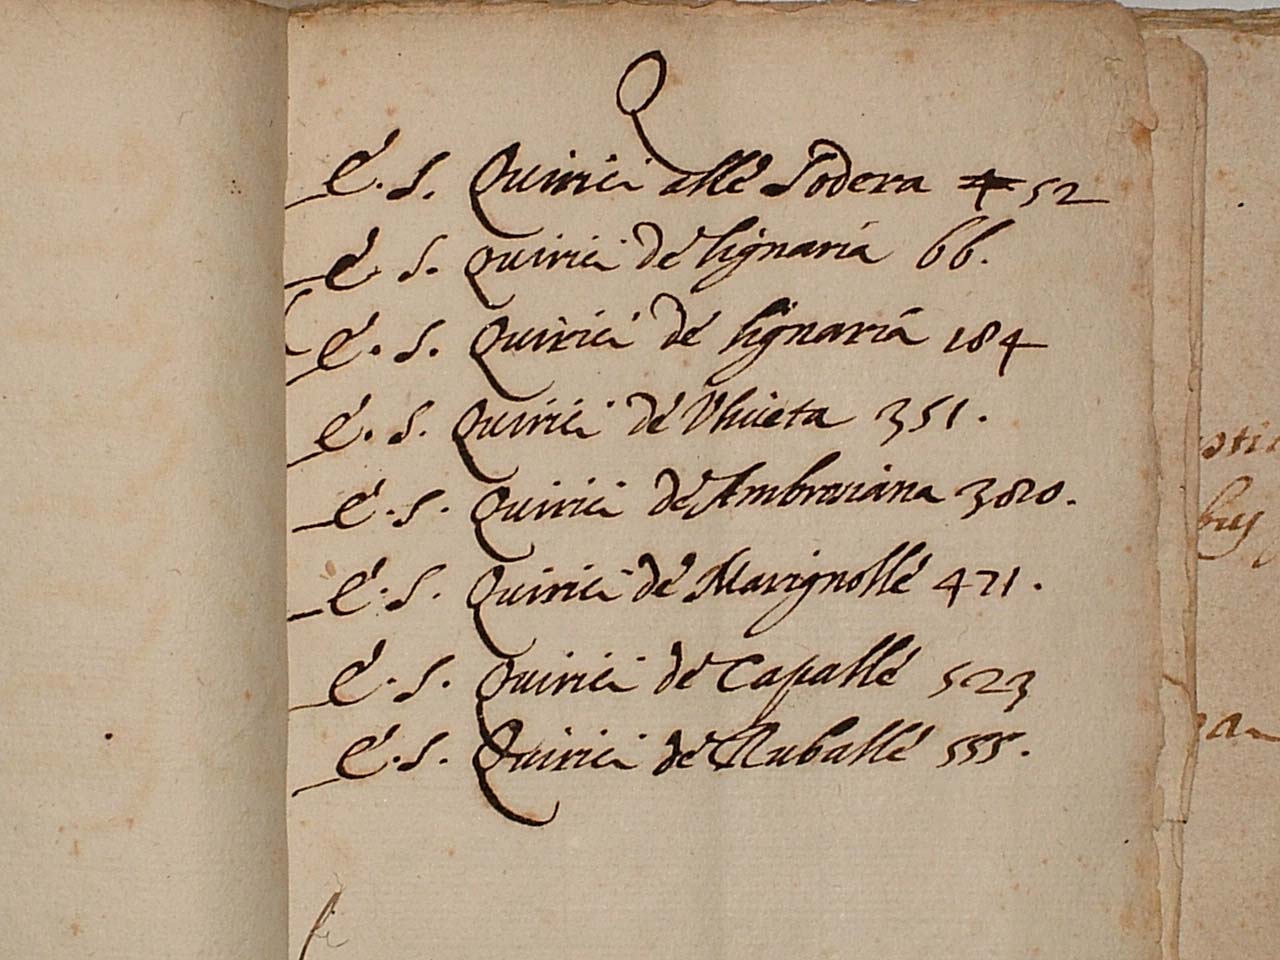 Q
E. S. Quirici alle Sodera 52
E. S. Quirici de lignaria 66.
E. S. Quirici de lignaria 184
E. S. Quirici de Vliueta 351.
E. S. Quirici de Ambroviana 380.
E. S. Quirici de Marignolle 471.
E. S. Quirici de Capalle 523
E. S. Quirici de Ruballe 555.